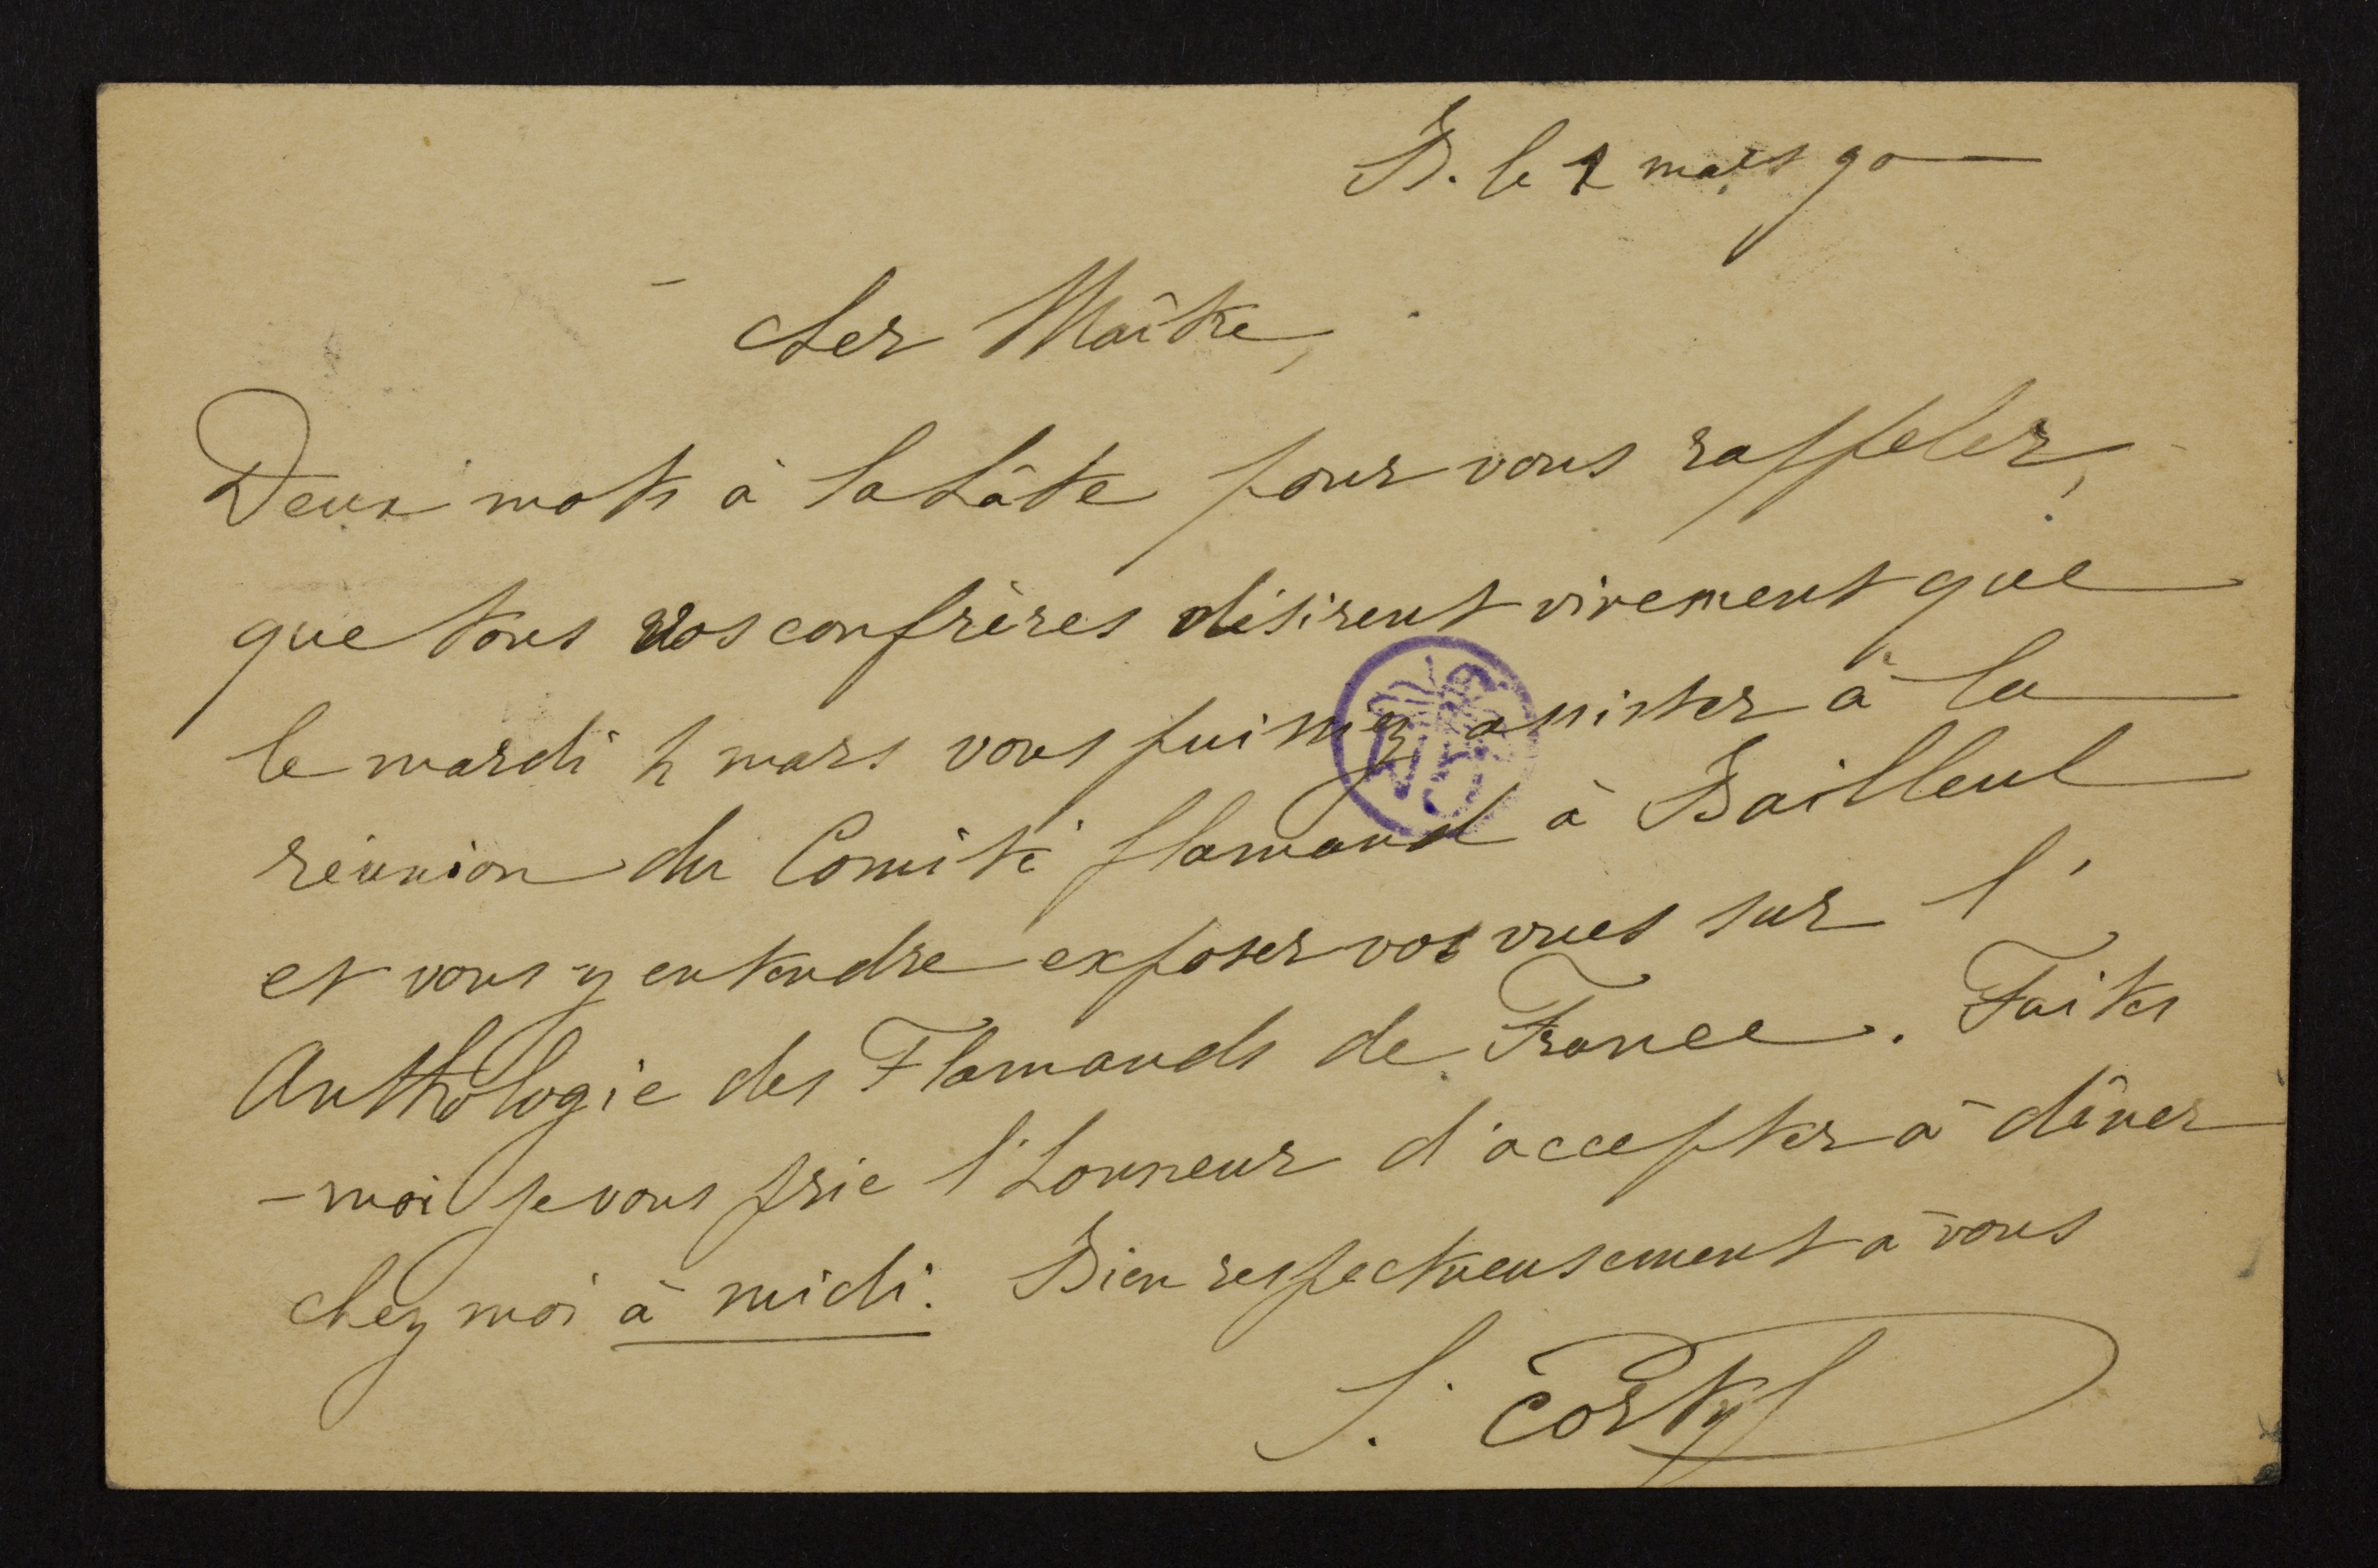 B. le 1 mars 90
Cher Maître,
Deux mots à la hâte pour vous rappeler,
que tous vos confrères désirent vivement que
le mardi 4 mars vous puissiez assister à la
réunion du Comité flamand à Bailleul
et vous y entendre exposer vos vues sur l'
Anthologie des Flamands de France. Faites
-moi je vous prie l'honneur d'accepter à dîner
chez moi à midi. Bien respectueusement à vous
J. Cortyl